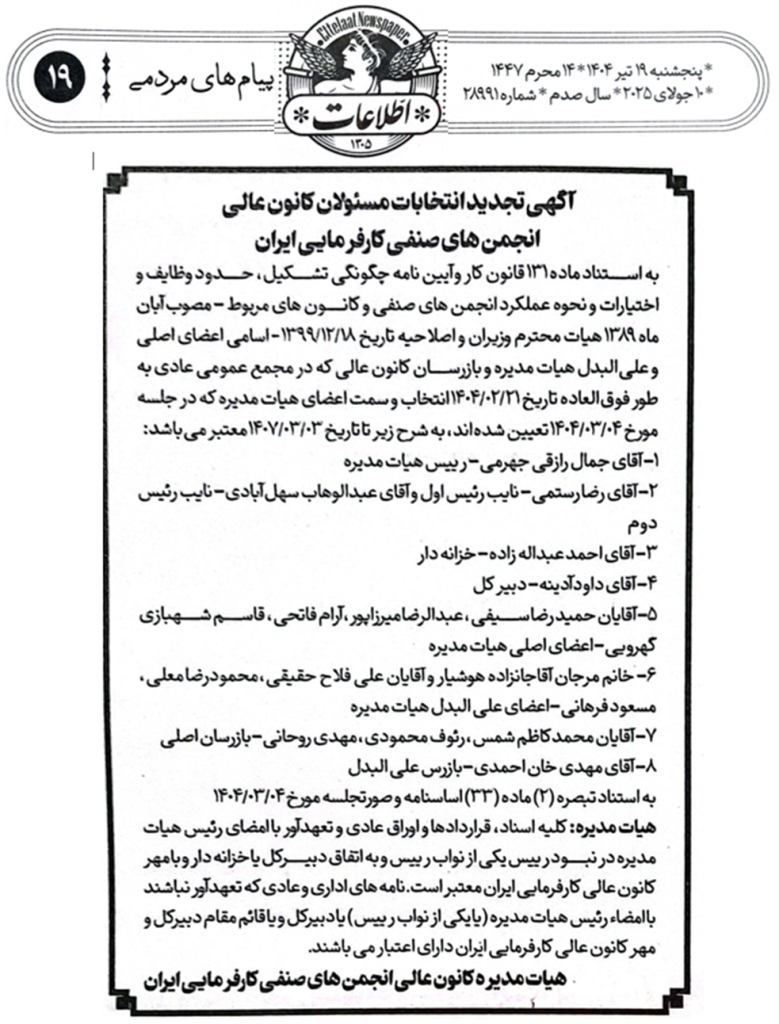 * پنجشنبه ۱۹ تیر ۱۴۰۴ * ۱۴ محرم ۱۴۴۷
* ۱۰ جولای ۲۰۲۵ * سال صدم * شماره ۲۸۹۹۱
Ettelaat Newspaper
* اطلاعات *
۱۳۰۵
پیام های مردمی
۱۹
آگهی تجدید انتخابات مسئولان کانون عالی
انجمن های صنفی کارفرمایی ایران
به استناد ماده ۱۳۱ قانون کار و آیین نامه چگونگی تشکیل، حدود وظایف و
اختیارات و نحوه عملکرد انجمن های صنفی و کانون های مربوط - مصوب آبان
ماه ۱۳۸۹ هیات محترم وزیران و اصلاحیه تاریخ ۱۳۹۹/۱۲/۱۸- اسامی اعضای اصلی
و علی البدل هیات مدیره و بازرسان کانون عالی که در مجمع عمومی عادی به
طور فوق العاده تاریخ ۱۴۰۴/۰۲/۲۱ انتخاب و سمت اعضای هیات مدیره که در جلسه
مورخ ۱۴۰۴/۰۳/۰۴ تعیین شده اند، به شرح زیر تا تاریخ ۱۴۰۷/۰۳/۰۳ معتبر می باشد:
۱-آقای جمال رازقی جهرمی- رییس هیات مدیره
۲-آقای رضا رستمی- نایب رئیس اول و آقای عبدالوهاب سهل آبادی- نایب رئیس
دوم
۳-آقای احمد عبداله زاده- خزانه دار
۴-آقای داود آدینه- دبیر کل
۵-آقایان حمیدرضا سیفی، عبدالرضا میرزاپور، آرام فاتحی، قاسم شهبازی
گهرویی- اعضای اصلی هیات مدیره
۶- خانم مرجان آقاجانزاده هوشیار و آقایان علی فلاح حقیقی، محمودرضا معلی،
مسعود فرهانی- اعضای علی البدل هیات مدیره
۷-آقایان محمد کاظم شمس، رئوف محمودی، مهدی روحانی- بازرسان اصلی
۸-آقای مهدی خان احمدی- بازرس علی البدل
به استناد تبصره (۲) ماده (۳۳) اساسنامه و صورتجلسه مورخ ۱۴۰۴/۰۳/۰۴
هیات مدیره: کلیه اسناد، قراردادها و اوراق عادی و تعهدآور با امضای رئیس هیات
مدیره در نبود رییس یکی از نواب رییس و به اتفاق دبیر کل یا خزانه دار و با مهر
کانون عالی کارفرمایی ایران معتبر است. نامه های اداری و عادی که تعهدآور نباشند
با امضاء رئیس هیات مدیره (یا یکی از نواب رییس) یا دبیر کل و یا قائم مقام دبیر کل و
مهر کانون عالی کارفرمایی ایران دارای اعتبار می باشند.
هیات مدیره کانون عالی انجمن های صنفی کارفرمایی ایران